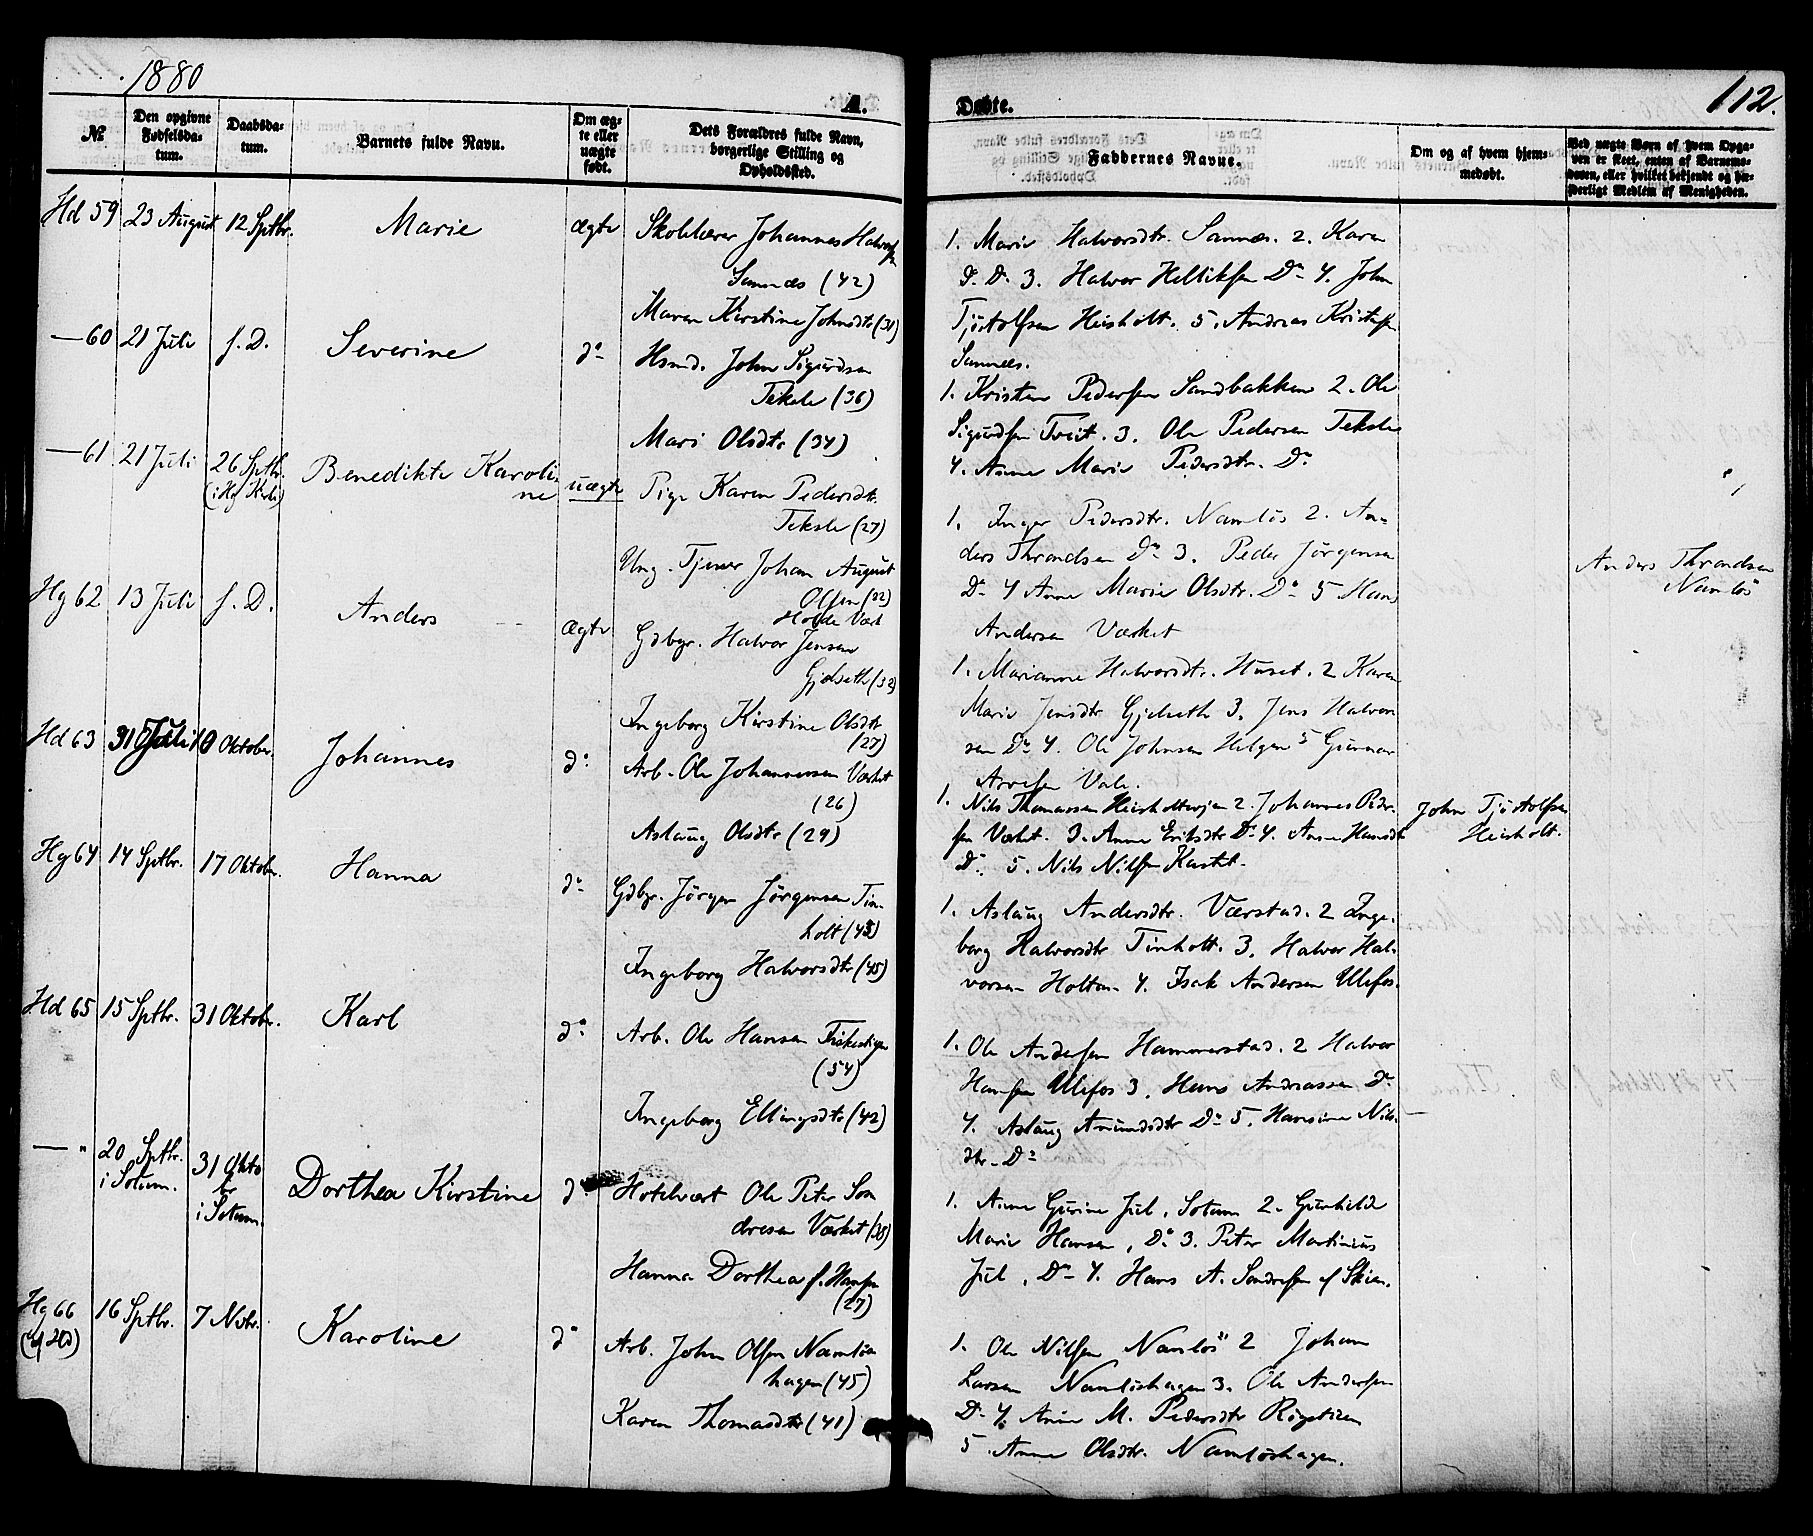 1880
A.
Døbte.
112.
№
Den opgivne Fødselsdatum.
Daabsdatum.
Barnets fulde Navn.
Om ægte eller uægte født.
Dets Forældres fulde Navn, borgerlige Stilling og Opholdssted.
Faddernes Navne.
Om og af hvem hjemmedøbt.
Ved uægte Børn af hvem Opgaven er skeet, enten af Barnemoderen, eller hvilket bekjendt og hæderligt Medlem af Menigheden.
Hd 59 23 August 12 Sptbr. Marie ægte Skolelærer Johannes Halvorsen
Sannæs (42)
Maren Kirstine Johnsdtr (31)
1. Marie Halvorsdtr. Sannæs. 2. Karen
D. Do 3. Halvor Helliksen Do 4. John
Tjostolfsen Heisholt. 5. Andreas Kristensen
Sannæs.
— 60 21 Juli s. D. Severine do Hsmd. John Sigurdsen
Teksle (36)
Mari Olsdtr (34)
1. Kristen Pedersen Sandbakken 2. Ole
Sigurdsen Tveit. 3. Ole Pedersen Teksle
4. Anne Marie Pedersdtr. Do
— 61 21 Juli 26 Sptbr. (i Hg Kirke) Benedikte Karoline uægte Pige Karen Pedersdtr.
Teksle (27)
Ung. Tjener Johan August
Olsen (22)
Holde Værk
1. Inger Pedersdtr. Namløs 2. An-
ders Throndsen Do 3. Peder Jørgensen
Do 4 Anne Marie Olsdtr. Do 5 Hans
Andersen Værket
Anders Throndsen
Namløs
Hg 62 13 Juli s. D. Anders ægte Gdbgr. Halvor Jensen
Gjelseth (32)
Ingeborg Kirstine Olsdtr
(27)
1. Marianne Halvorsdtr. Huset. 2 Karen
Marie Jensdtr Gjelseth 3. Jens Halvor
sen Do 4. Ole Johnsen Helgen 5 Gunnar
Arvesen Vale.
Hd 63 31 Juli 10 Oktober. Johannes do Arb. Ole Johannesen Værket
(26)
Aslaug Olsdtr (29)
1. Nils Thomassen Heisholtveien 2. Johannes Peder-
sen Værket. 3. Anne Eriksdtr Do 4. Anne Hansdtr
Do. 5. Nils Nilsen Kastet.
John Tjostolfsen
Heisholt.
Hg 64 14 Sptbr. 17 Oktober. Hanna do Gdbgr. Jørgen Jørgensen Tin-
holt (43)
Ingeborg Halvorsdtr (45)
1. Aslaug Andersdtr. Værstad. 2 Inge-
borg Halvorsdtr Tinholt. 3. Halvor Hal-
vorsen Holtan. 4. Isak Andersen Ulefos.
Hd 65 15 Sptbr. 31 Oktober. Karl do Arb. Ole Hansen Fiskestigen
(54)
Ingeborg Ellingsdtr (42)
1. Ole Andersen Hammerstad. 2 Halvor
Hansen Ulefos 3. Hans Andreassen Do
4. Aslaug Amundsdtr Do 5. Hansine Nils-
dtr. Do
— " 20 Sptbr. i Solum. 31 Oktober i Solum. Dorthea Kirstine do Hotelvært Ole Peter Son
dresen Værket (38)
Hanna Dorthea f. Hansen
(27)
1. Anne Gurine Jul, Solum 2. Gunhilde
Marie Hansen, Do 3. Peter Martinius
Jul, Do 4. Hans A. Sondresen af Skien.
Hg 66 (af Hd) 16 Sptbr. 7 Nvbr. Karoline do Arb. John Olsen Namløs
hagen (45)
Karen Thomasdtr (41)
1. Ole Nilsen Namløs 2 Johan
Larsen Namløshagen 3. Ole Andersen
Do 4. Anne M. Pedersdtr
5. Anne Olsdtr. Namløshagen.